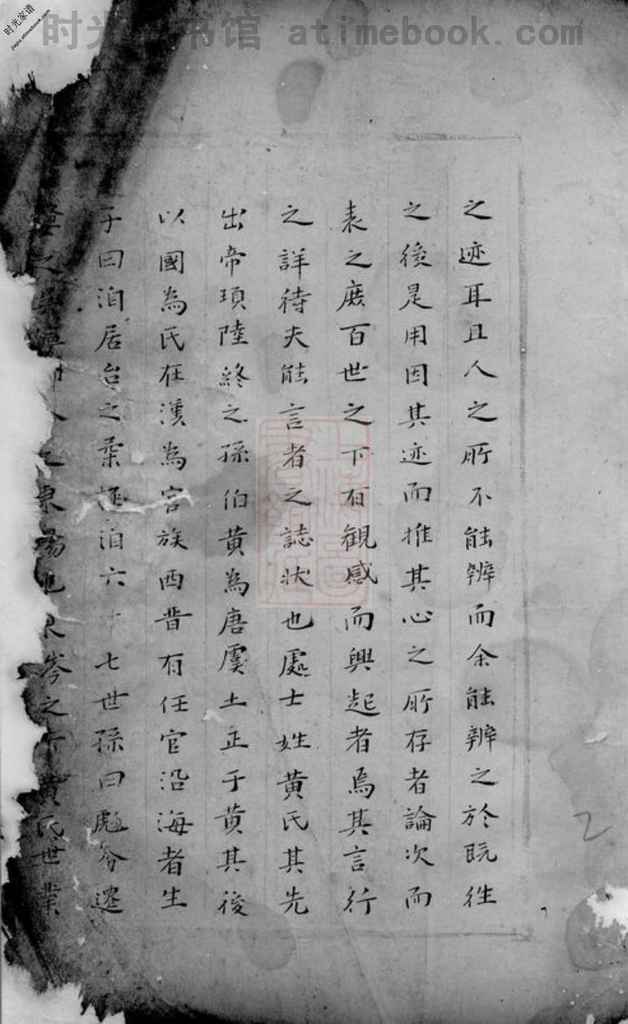 时光 书馆 atimebook.com
时光家谱
之迹耳且人之所不能辨而余能辨之於既往
之後是用因其迹而推其心之所存者論次而
表之庶百世之下有觀感而興起者焉其言行
之詳待夫能言者之誌狀也處士姓黄氏其先
出帝頊陸終之孫伯黄為唐虞土正于黄其後
以國為氏在漢為官族西晋有任官沿海者生
子曰洎居台之 洎六十七世孫曰彪 遷
之 之東 也 岑之 黄氏世業
2